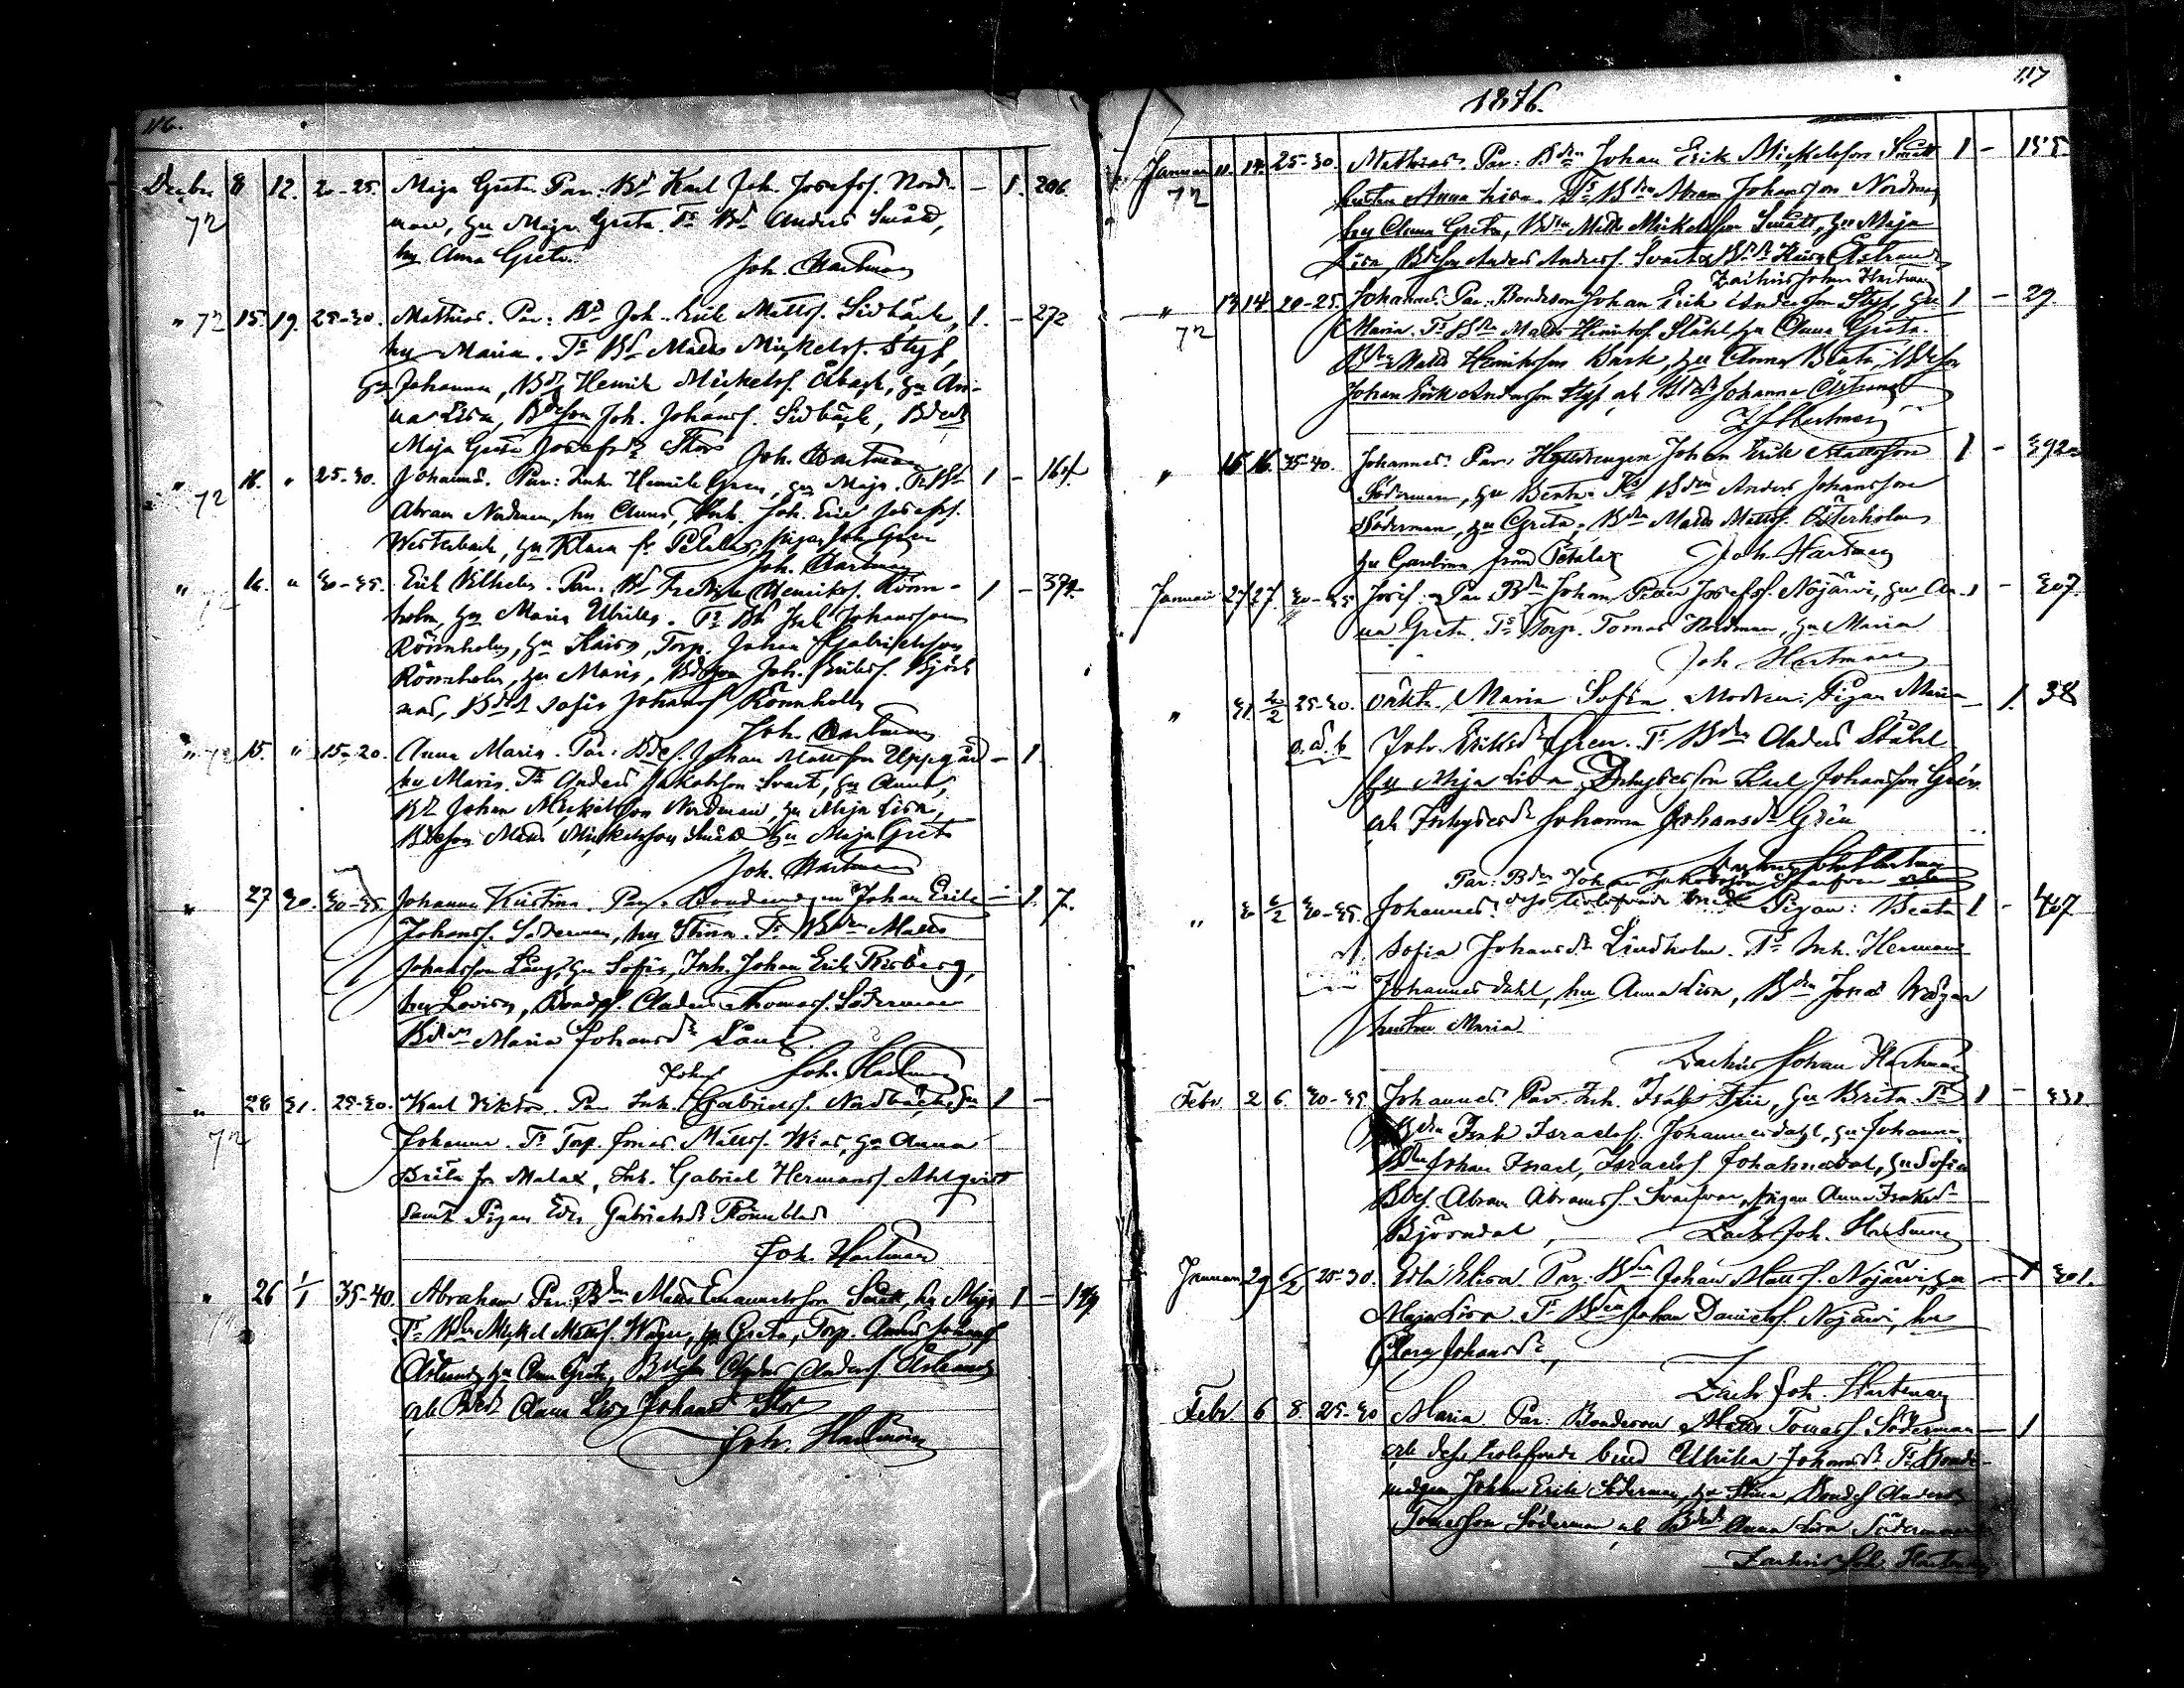 116.
Decbr 8 12. 20-25. Maja Greta. Par: Bd Karl Joh. Josefss. Nord- - 1. 206.
72 man, hu Maja Greta. Ts Bd Anders Smått,
hu Anna Greta.
Joh. Hartman
" 72 15. 19. 25-30. Mathias. Par: Bd Joh. Erik Mattss. Sidbäck, 1. - 272
hu Maria. Ts Bd Matts Mickelss. Styf,
hu Johanna, Bd Henrik Mickelss. Åback, hu An-
na Lisa, Bdeson Joh. Johanss. Sidbäck, Bded
Maja Greta Josefsdr Thors
Joh. Hartman
" 72 16. " 25-30. Johannes. Par: Inh. Henrik Gren, hu Maja. Ts Bd 1 - 164
Abram Nordman, hu Anna, Inh. Joh. Erik Josefss.
Westerback, hu Klara fr. Petalax, pigan Joh. Gren
Joh. Hartman
" 72 16. " 30-35. Erik Vilhelm. Par: Bd Fredrik Henrikss. Rönn- 1 - 374
holm, hu Maria Ulrika. Ts Bd Isak Johansson
Rönnholm, hu Kaisa, Torp. Johan Gabrielsson
Rönnholm, hu Maria, Bdeson Joh. Erikss. Björk
nas, Bded Sofia Johansd Rönnholm
Joh. Hartman
" 72 15. " 15-20. Anna Maria. Par: Bdes. Johan Mattsson Uppgård - 1.
hu Maria. Ts Anders Jakobsson Svart, hu Anna,
Bd Johan Mickelsson Nordman, hu Maja Lisa,
Bdeson Matts Mickelsson Smått hu Maja Greta
Joh. Hartman
" 27 30. 30-35. Johanna Kristina. Par: Bondemågen Johan Erik - 1. 7.
Johanss. Söderman, hu Stina. Ts Bden Matts
Johansson Lång, hu Sofia, Inh. Johan Erik
hu Lovisa, Bondes. Anders Thomass. Söderman
Bded Maria Johansdr Lång.
Joh. Hartman
" 28 31. 25-30. Karl Viktor. Par Inh. Johans Gabrielss. Nordback, hu 1 -
72 Johanna. Ts Torp. Jonas Mattss. Wias, hu Anna
Brita fr Malax, Inh. Gabriel Hermanss. Ahlqvist
samt Pigan Eva Gabrielsdr Rönnblad
Joh. Hartman
" 26 1/1 35-40. Abraham Par: Bdn Matts Emanuelsson Smått, hu Maja 1 -
Ts Bdn Mickel Mattss. Wägar, hu Greta, Torp. Anders Johanss
Åstrand, hu Anna Greta, Bdeson Anders Anderss. Åstrand
och Bded Anna Lisa Johansd Stor
Joh. Hartman
1876.
117
Januari 11. 14. 25-30. Mathias. Par: Bdn Johan Erik Mickelsson Smått 1 - 155.
72 hustru Anna Lisa. Ts Bdn Abram Johansson Nordman
hu Anna Greta, Bdn Matts Mickelsson Smått, hu Maja
Lisa, Bdeson Anders Anderss. Svart och Bded Kaisa Åstrand
Zachris Johan Hartman
" 13 14 20-25. Johannes. Par: Bondeson Johan Erik Andersson Styf, hu 1 - 29
72 Maria. Ts Bdn Matts Henrikss. Ståhl, hu Anna Greta.
Bdn Matts Henriksson Back, hu Anna Beata, Bdeson
Johan Erik Andersson Styf och Bded Johanna Östman
ZJ Hartman
" 16 16. 35-40. Johannes. Par: Hyttdrengen Johan Erik Mattsson 1 - 392
Söderman, hu Berta. Ts Bdn Anders Johansson
Söderman, hu Greta, Bdn Matts Mattss. Österholm
hu Carolina från Petalax
Joh. Hartman
Januari 27 27. 30-35 Josef. Par Bdn Johan Petter Josefss. Nojärvi, hu An- 1 - 307
na Greta. Ts Torp. Tomas Nordman, hu Maria
Joh Hartman
" 31 2/2 25-30. Oäkta Maria Sofia. Modren: Pigan Maria - 1. 38
Joh. Eriksdr Gren. Ts Bdn Anders Ståhl
hu Maja Lisa, Inhyseson Karl Johansson Grén
och Inhysesdr Johanna Johansdr Grén
Zachris Joh. Hartman
Par: Bdn Johan Jakobsson Svarfvar och
" 30 2/2 30-35. Johannes. dess trolofvade brud Pigan: Beata 1 - 407
Sofia Johansdr Lindholm. Ts Inh. Herman
Johannesdahl, hu Anna Lisa, Bdn Jonas Wägar
hustru Maria.
Zachris Johan Hartman
Febr 2 6. 30-35. Johannes. Par: Inh. Isak Frii, hu Brita. Ts 1 - 331.
Bdn Isak Israelss. Johannesdahl, hu Johanna,
Bdn Johan Israel, Israelss. Johannesdal, hu Sofia
Bdes. Abram Abramss. Svarfvar, pigan Anna Isaksd
Björndal,
Zachr. Joh. Hartman
Januari 29 6/2 25-30. Edla Elisa Par: Bdn Johan Matts. Nojärvi, hu - 1 301.
Maja Lisa Ts Bdn Johan Danielss. Nojärvi, hu
Clara Johansdr,
Zachr Joh. Hartman
Febr 6 8 25-30 Maria Par: Bondeson Matts Tomass. Söderman - 1
och dess trolofvade brud Ulrika Johansdr. Ts Bonde-
mågen Johan Erik Söderman, hu Stina, Bondes Anders
Tomasson Söderman och Bded Anna Lisa Söderman
Zachris Joh. Hartman